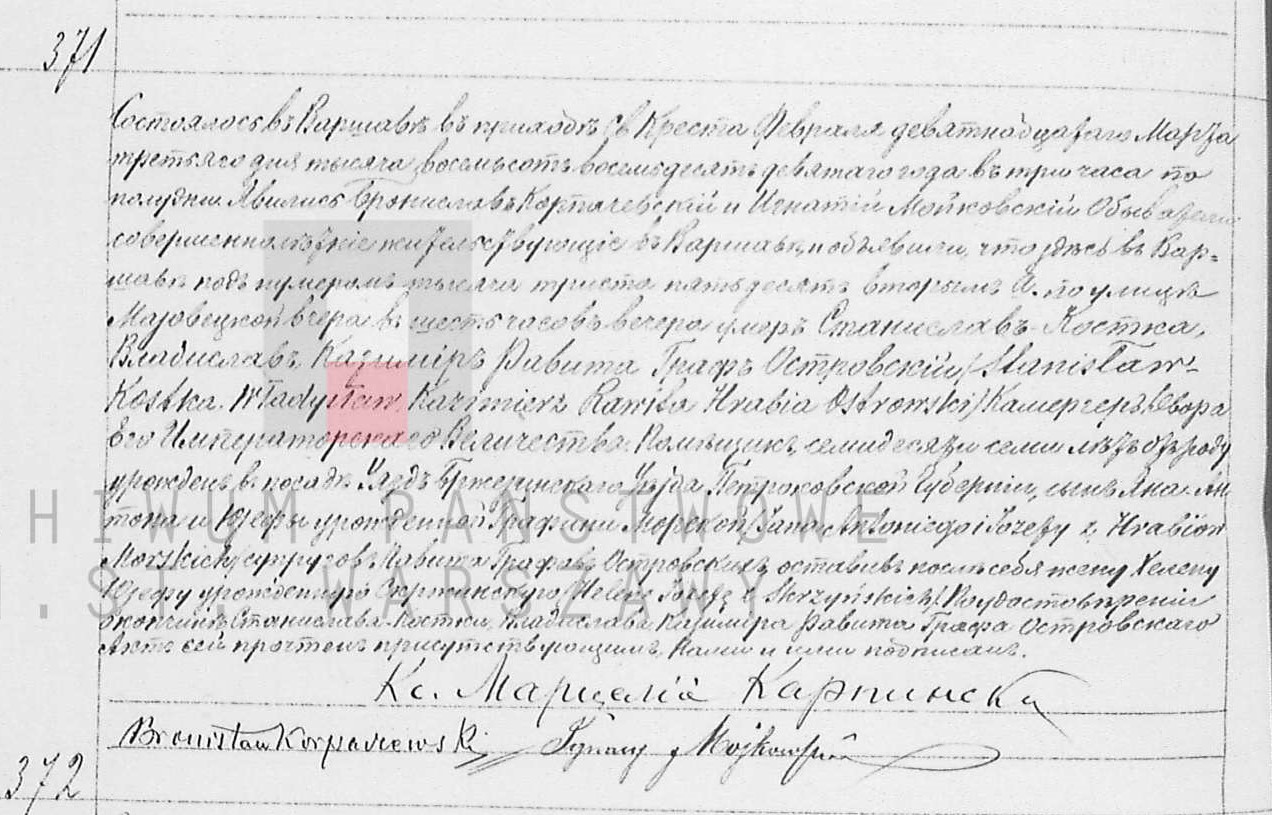 371
Состоялось въ Варшавѣ въ приходѣ Св Креста Февраля девятнадцатаго Марта
третьяго дня тысяча восемьсотъ восемьдесятъ девятаго года въ три часа по
полудни. Явились Брониславъ Корпачевскій и Игнатій Мойковскій Обыватели
совершеннолѣтніе жительствующіе въ Варшавѣ, и объявили, что здѣсь въ Вар=
шавѣ подъ нумеромъ тысяча триста пятьдесятъ вторымъ А. по улицѣ
Мазовецкой вчера въ шесть часовъ вечера умеръ Станиславъ-Костка,
Владиславъ, Казимiръ Равита Графъ Островскій /Stanisław-
Kostka Władysław Kazimierz Rawita Hrabia Ostrowski/ Камергеръ Двора
Его Императорскаго Величества, Помѣщикъ, семидесяти семи лѣтъ отъ роду
урожденъ въ посадѣ Уяздъ Бржезинскаго Уѣзда Петроковской Губерніи, сынъ Яна-Ан-
тона и Юзефы урожденной Графини Морской /Jana Antoniego i Józefy z Hrabiów
Morskich/ супруговъ Равита Графовъ Островскихъ, оставивъ послѣ себя жену Хелену
Юзефу урожденную Скржинскую /Helenę Józefę z Skrzyńskich/. По удостовѣреніи
о кончинѣ Станислава-Костки, Владислава Казимiра Равита Графа Островскаго
Актъ сей прочтенъ присутствующимъ, Нами и ими подписанъ.
Кс. Марцелій Карпински
Bronisław Korpaczewski Ignacy Mojkowski
372
HIWUM PAŃSTWOWE
.ST. WARSZAWY